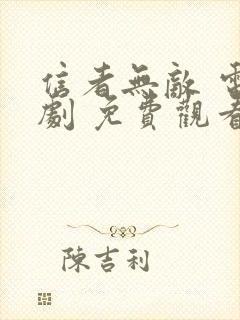 信者無敵 電
劇 免費觀看
陳吉利